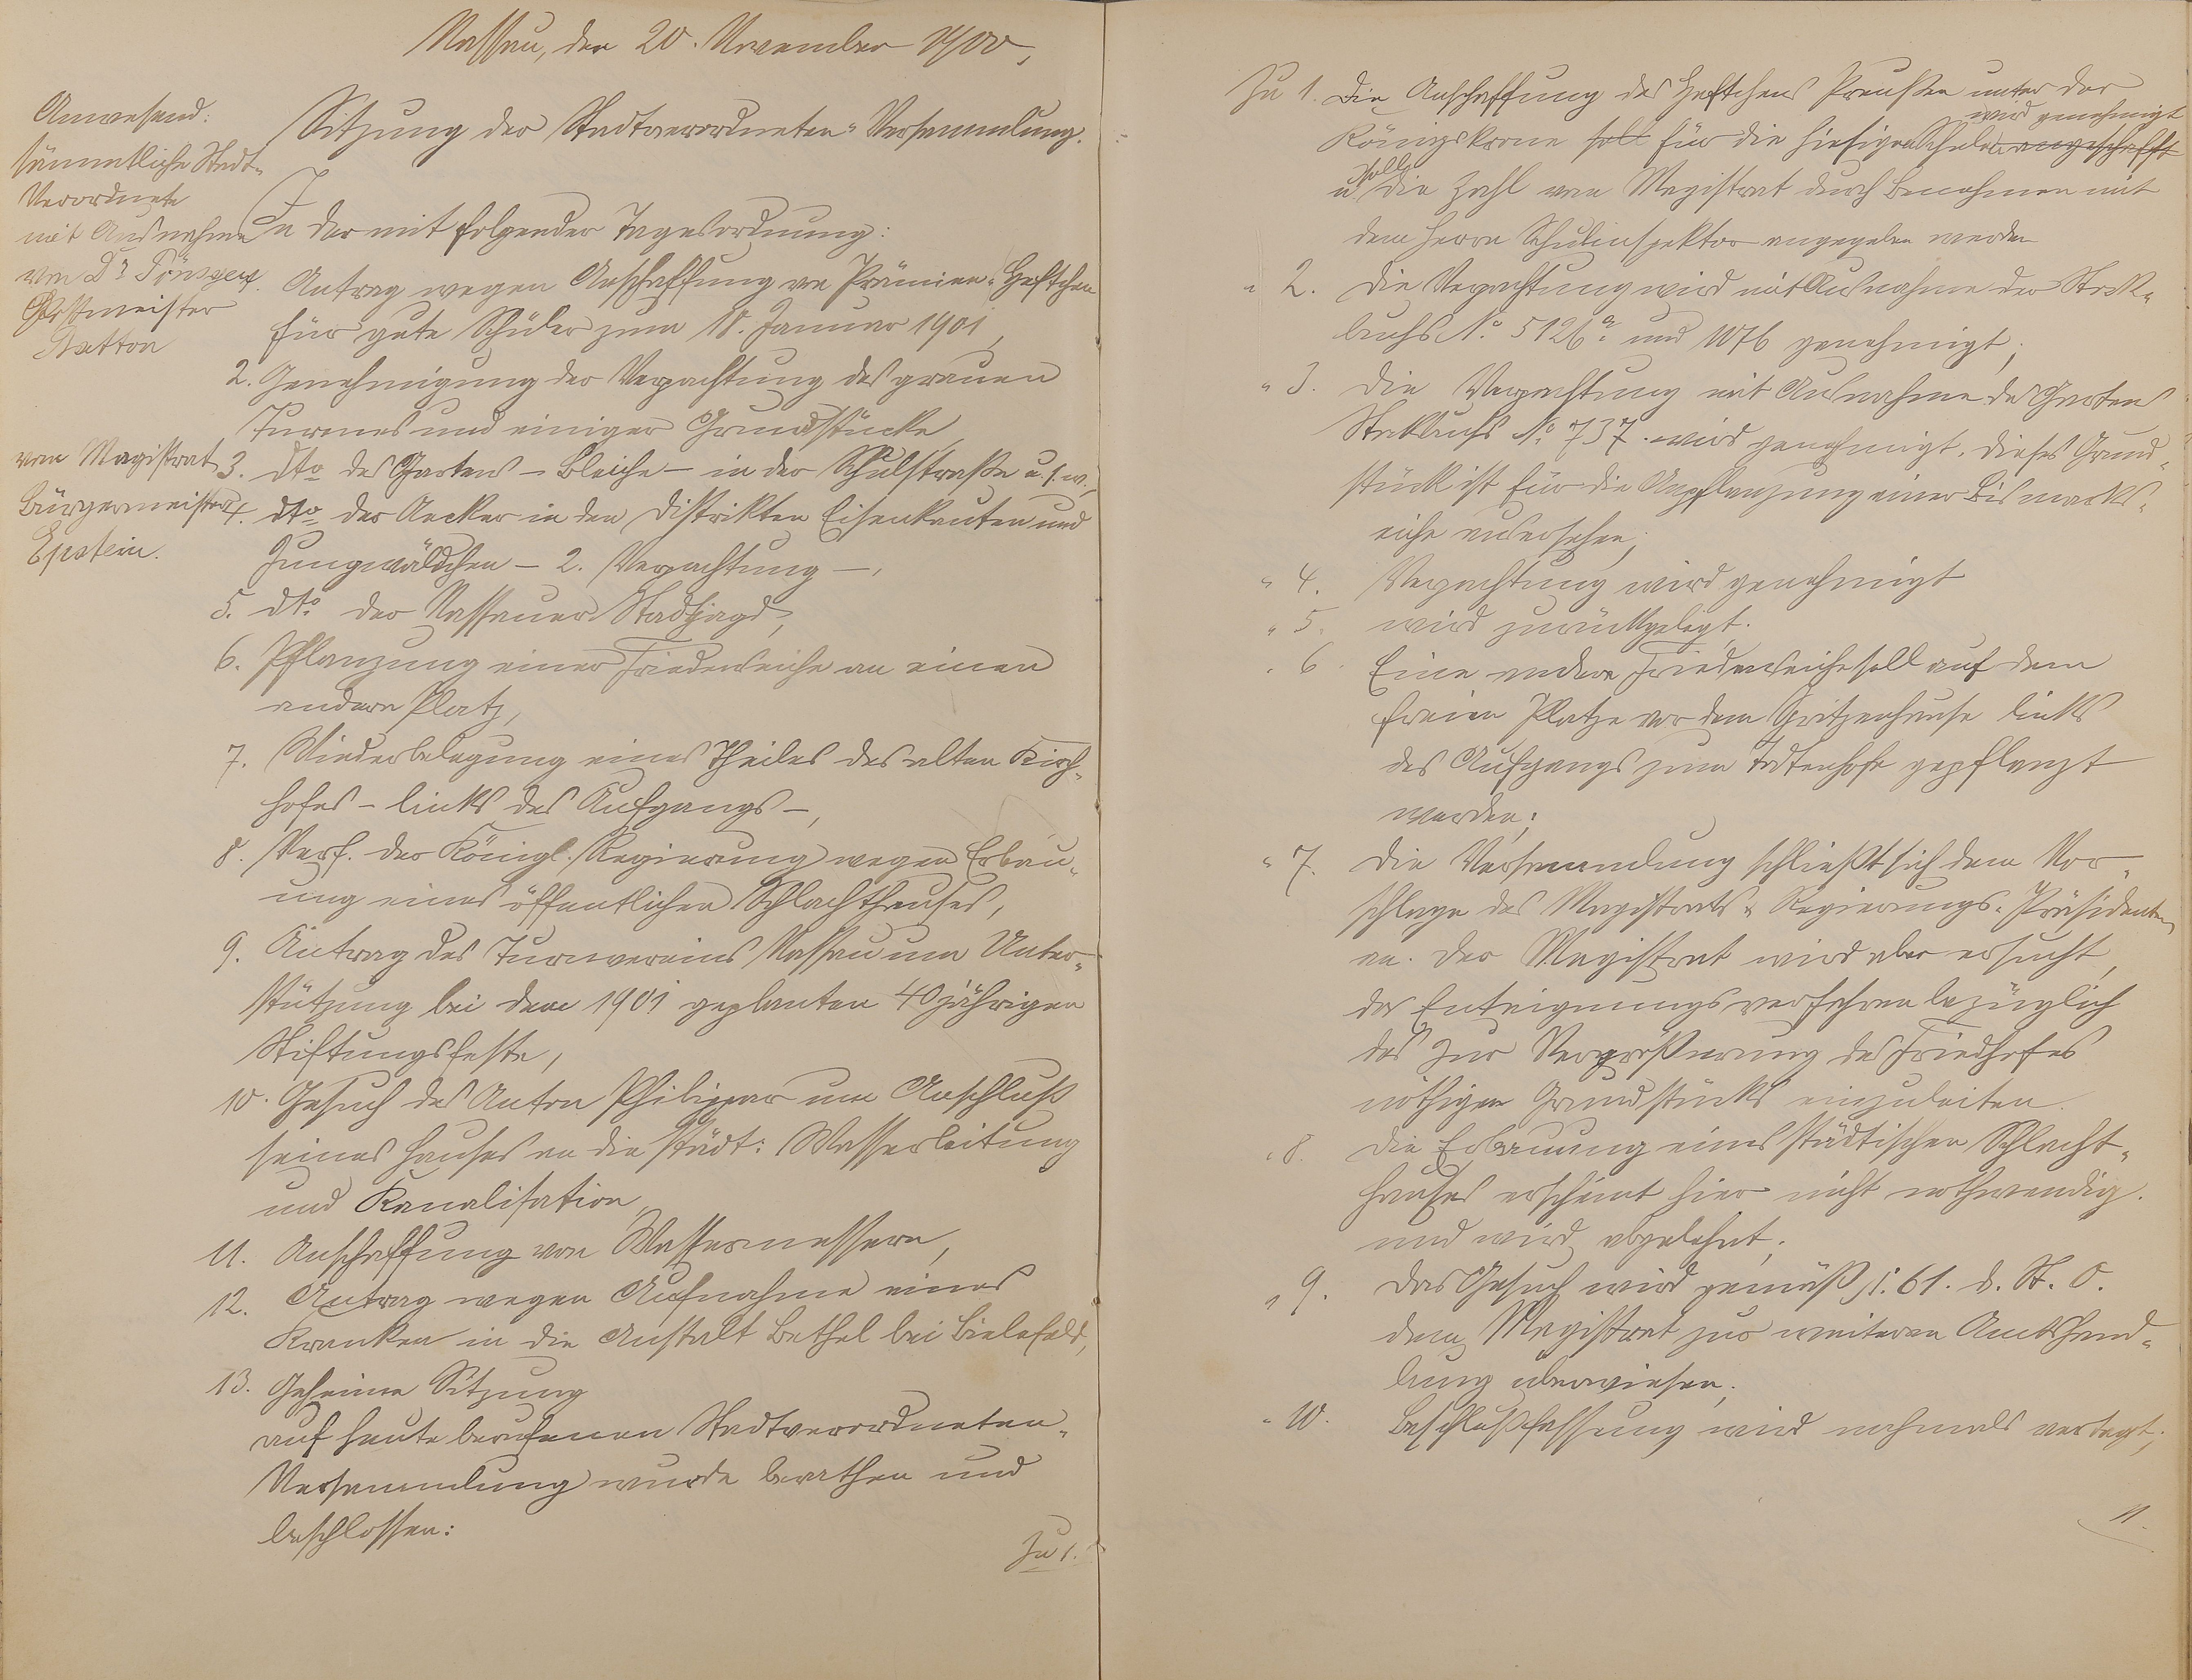 Nassau, den 20. November 1900,
Anwesend:
sämmtliche Stadt-
Verordnete
mit Ausnahme
von Dr
Postmeister
vom Magistrat
Bürgermeister
Epstein.
Sitzung der Stadtverordneten-Versammlung.
In der mit folgender Tagesordnung:
Antrag wegen Anschaffung von Prämien-Heftchen
für gute Schüler zum 18. Januar 1901,
2. Genehmigung der Verpachtung des grauen
Turmes und einiger Grundstücke
3. dto des Gartens - Bleiche - in der Schulstraße u.s.w.,
4. dto der Aecker in den Distrikten Eisenkauten und
Jungwäldchen - 2. Verpachtung -,
5. dto der Nassauer Stadtjagd,
6. Pflanzung einer Friedenseiche an einen
andern Platz,
7. Wiederbelegung eines Theiles des alten Kirch-
hofes - links des Aufgangs -,
8. Verf. der Königl. Regierung wegen Erbau-
ung eines öffentlichen Schlachthauses,
9. Antrag des Turnvereins Nassau um Unter-
stützung bei dem 1901 geplanten 40jährigen
Stiftungsfeste,
10. Gesuch des Anton Philippar um Anschluß
seines Hauses an die städt: Wasserleitung
und Kanalisation,
11. Anschaffung von Wassermessern,
12. Antrag wegen Aufnahme eines
Kranken in die Anstalt Bethel bei Bielefeld,
13. Geheime Sitzung
auf heute berufenen Stadtverordneten-
Versammlung wurde berathen und
beschlossen:
Zu 1.
Zu 1. Die Anschaffung des Heftchens Preußen unter der
wird genehmigt
Königskrone soll für die hiesigen Schulen angeschafft
u. soll die Zahl vom Magistrat durch Benehmen mit
dem Herrn Schulinspektor angegeben werden
" 2. Die Verpachtung wird mit Ausnahme der Stock-
buchs No 5126a und 1076 genehmigt;
" 3. Die Verpachtung mit Ausnahme des Gartens
Stockbuchs No 737. wird genehmigt. Dieses Grund-
stück ist für die Anpflanzung einer Bismarcks-
eiche ausersehen;
" 4. Verpachtung wird genehmigt
" 5. wird zurückgelegt.
" 6. Eine andere Friedenseiche soll auf dem
freien Platze vor dem Spritzenhause links
des Aufgangs zum Todtenhofe gepflanzt
werden;
" 7. Die Versammlung schließt sich dem Vor-
schlage des Magistrats & Regierungs-Präsidenten
an. Der Magistrat wird aber ersucht,
das Enteignungsverfahren bezüglich
des zur Vergrößerung des Friedhofes
nöthigen Grundstücks einzuleiten.
" 8. Die Erbauung eines städtischen Schlacht-
hauses erscheint hier nicht nothwendig.
und wird abgelehnt;
" 9. Das Gesuch wird gemäß §. 61. d. St. O.
dem Magistrat zur weiteren Amtshand-
lung überwiesen;
" 10. Beschlußfassung wird nochmals vertagt;
11.